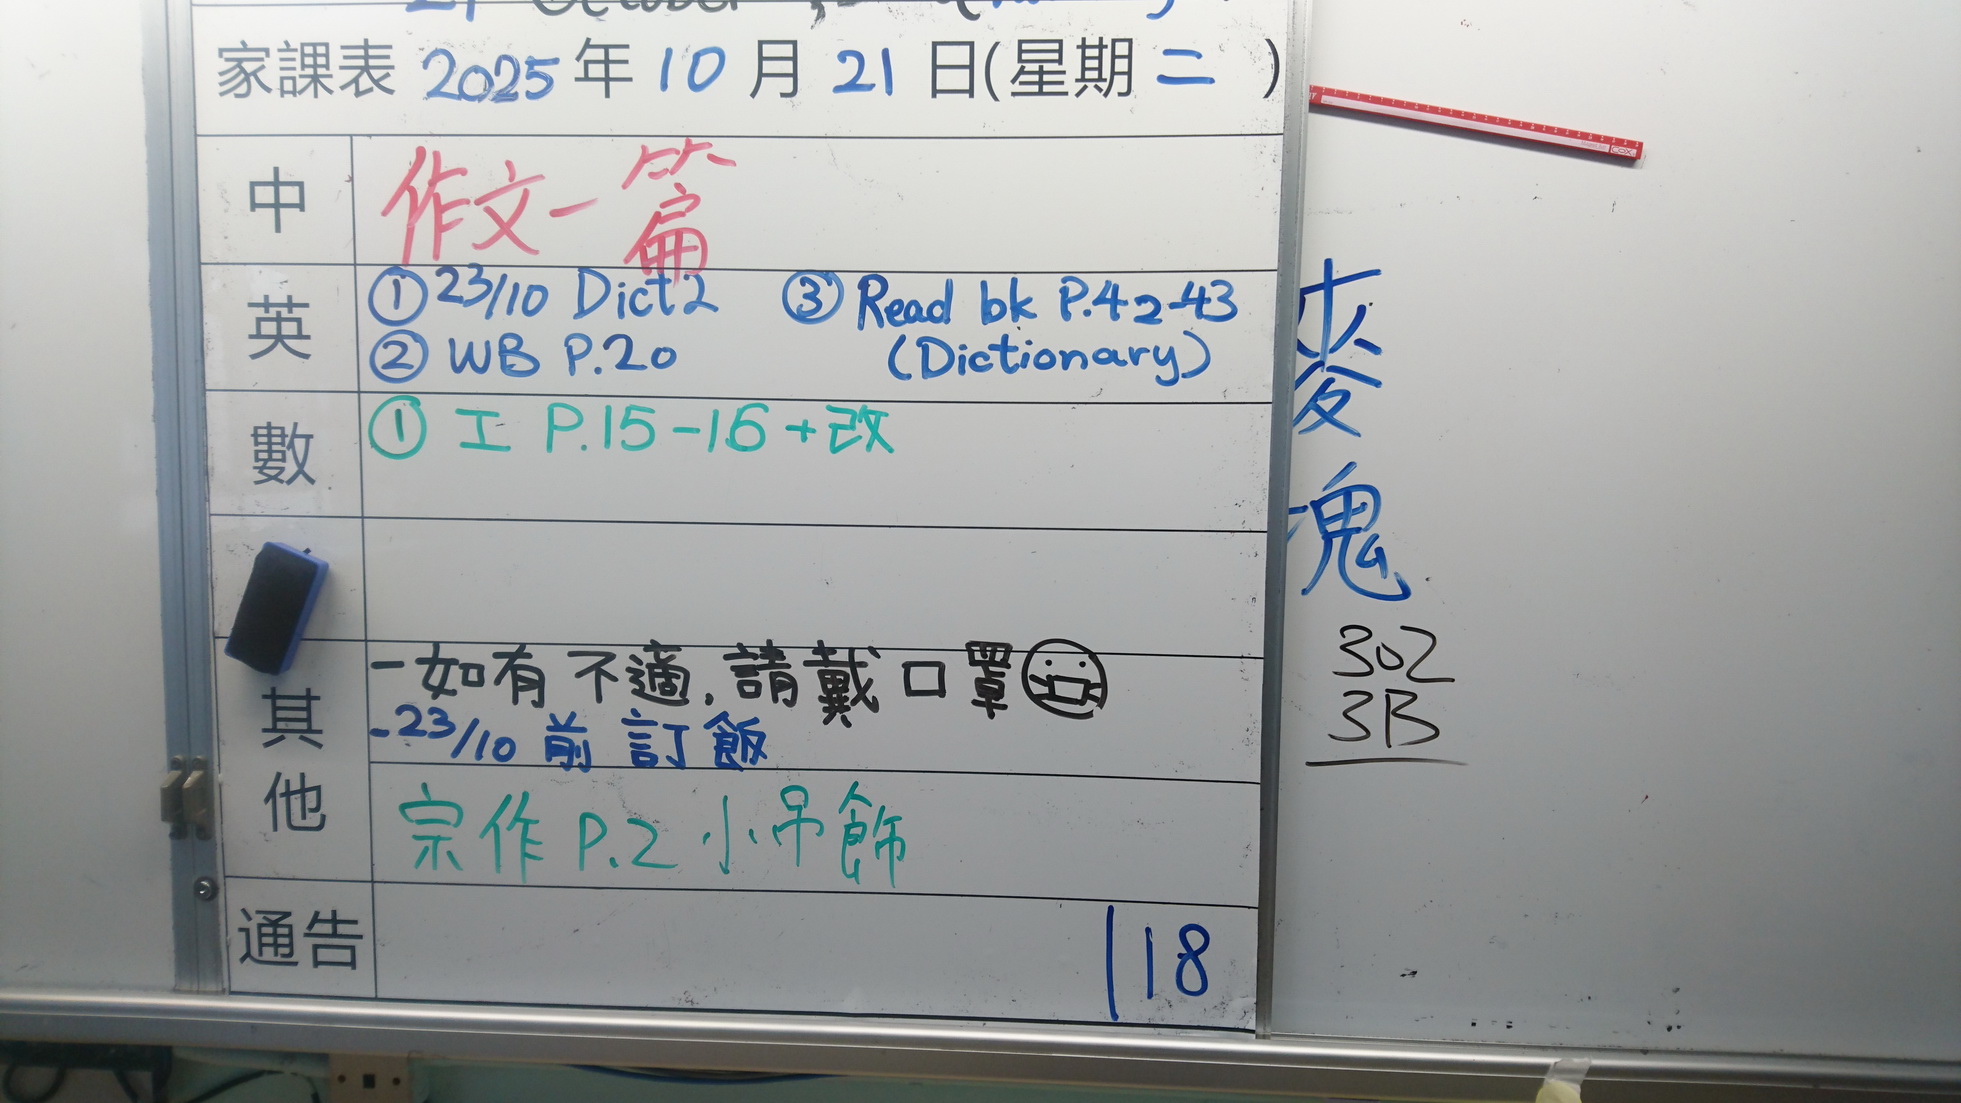 21 October
家課表 2025 年 10 月 21 日(星期 二 )
中
作文一篇
英
① 23/10 Dict 2
② WB P.20
③ Read bk P.42-43
(Dictionary)
數
① 工 P.15-16 + 改
其他
-如有不適,請戴口罩
-23/10 前訂飯
宗作 P.2 小吊飾
通告
18
麥
塊
302
3B